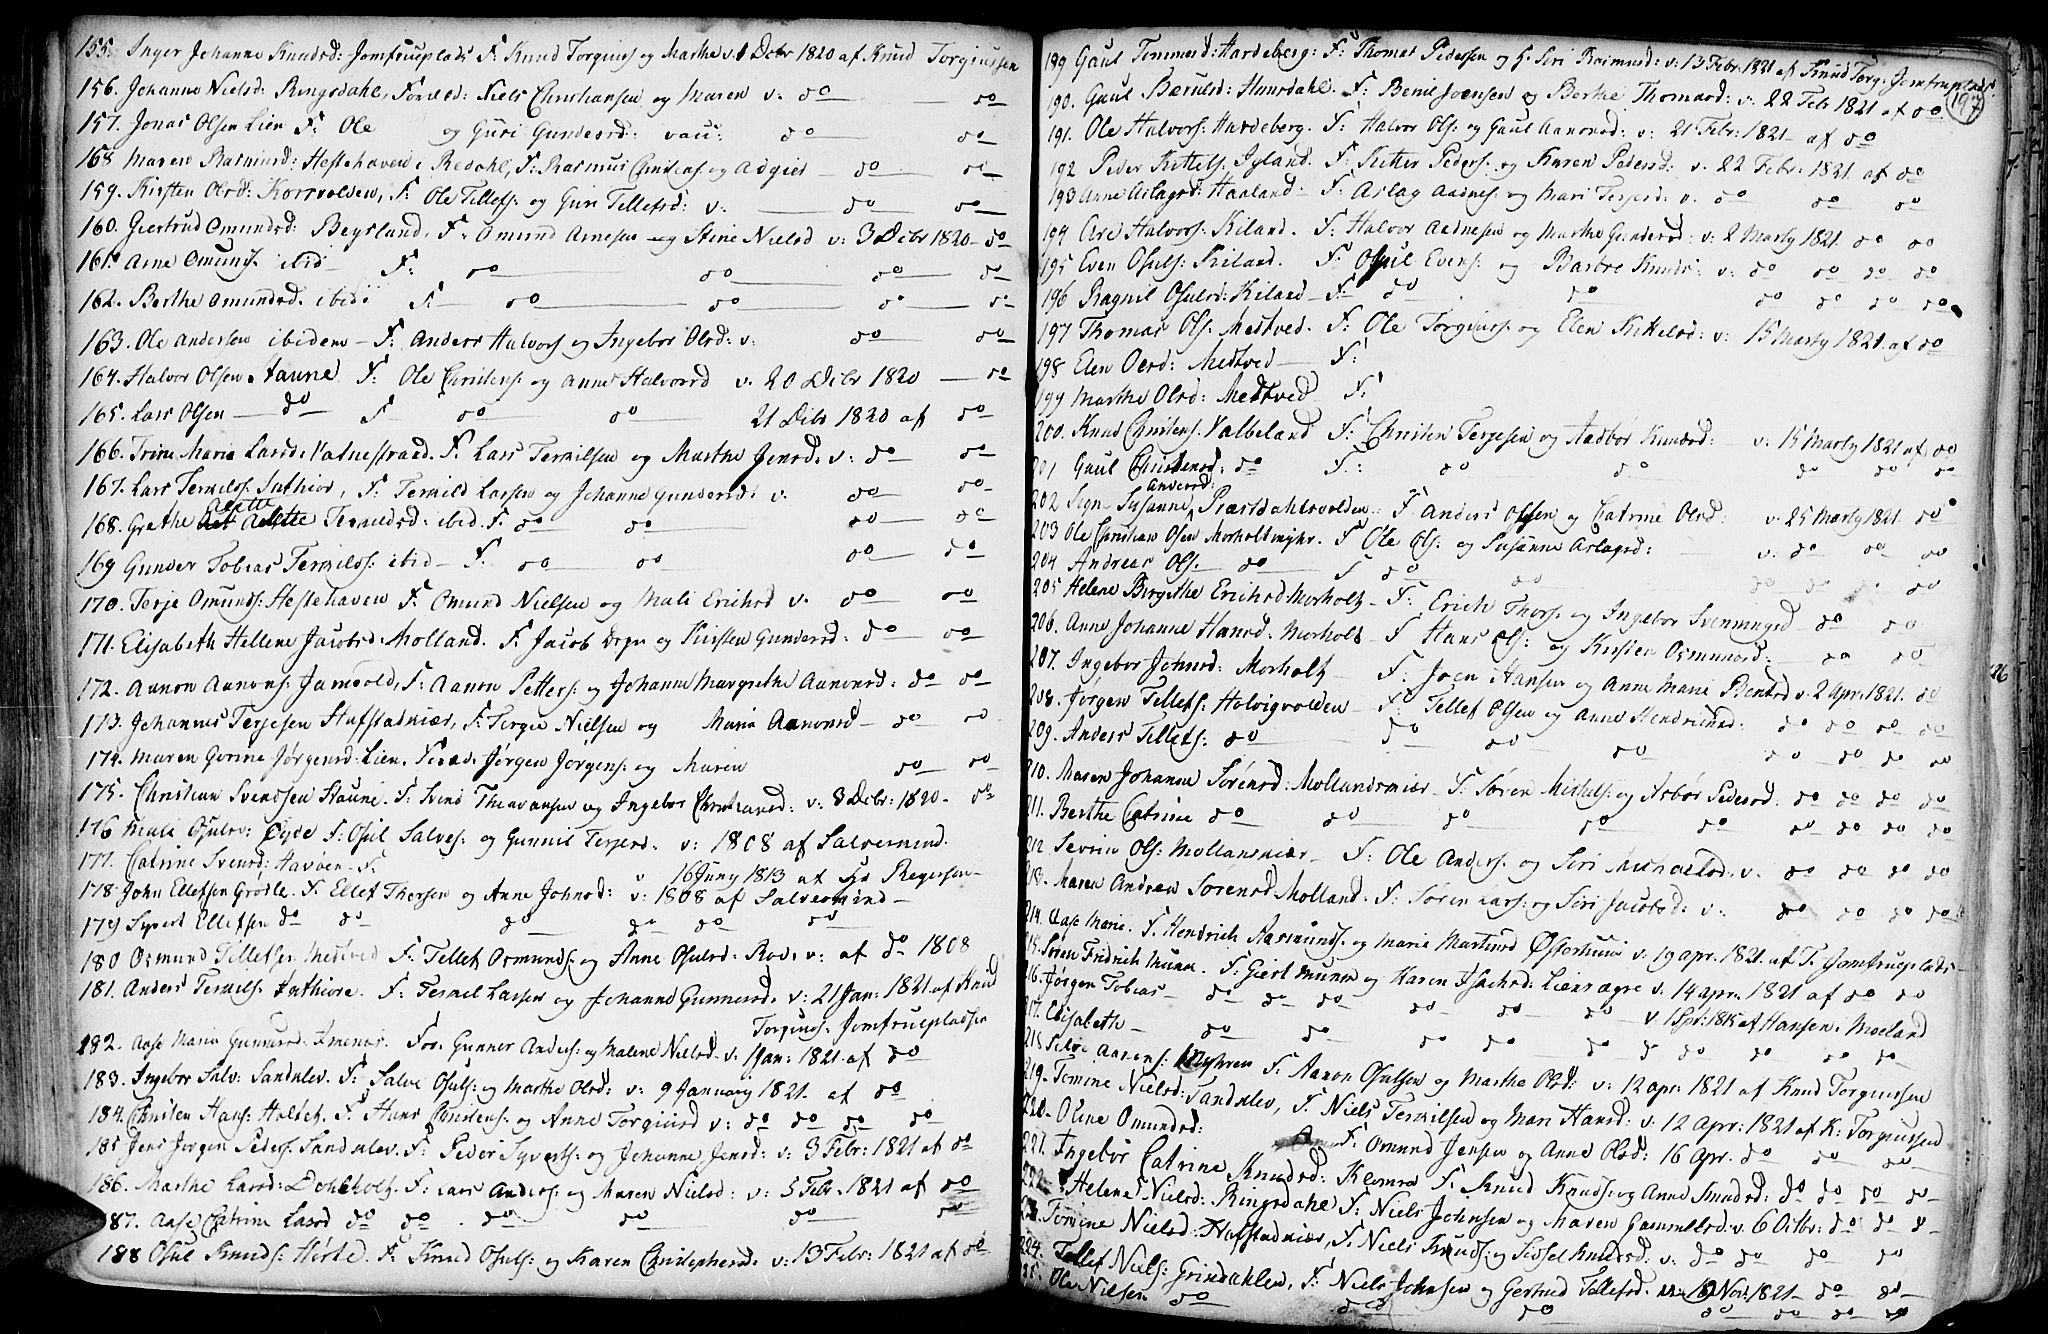 155. Inger Johanne Knudsd: Jomfrueplads F: Knud Torgius og Marthe v: 1 Debr 1820 af Knud Torgiussen
156. Johanne Nielsd: Ringsdahl, Foræld: Niels Christiansen og Maren v: do do
157. Jonas Olsen Lien F: Ole og Guri Gundersd: vau: do do
168 Maren Rasmusd: Hestehaven i Redahl, F: Rasmus Christens og Adgier do do
159. Kirsten Olsd: Korsvolden, F: Ole Tellefs: og Guri Tellefsd: v: do do
160. Giertrud Omundsd: Begsland. F: Omund Arnesen og Stine Nielsd v: 3 Debr 1820 do
161. Arne Omunds: ibid F: do do do do
162. Berthe Omundsd. ibid: F: do do do do
163. Ole Andersen ibidem F: Anders Halvors og Ingebor Olsd: v: do do
164. Halvor Olsen Haune F: Ole Christens: og Anne Halvorsd v. 20 Debr 1820 do
165. Lars Olsen do F do do 21 Debr 1820 af do
166. Trine Maria Larsd: Vatnestraed. F: Lars Termilsen og Marthe Jensd: v: do do
167. Lars Termilss: Inthior, F: Termild Larsen og Johanne Gundersd: v. do do
168. Grethe Alette Termildsd: ibid. F: do do do do
169 Gunder Tobias Termilds: ibid F: do do do do
170. Terje Omunds: Hestehaven F: Omund Nielsen og Mali Erichsd v. do do
171. Elisabeth Hellene Jacobsd: Molland. F: Jacob Degn og Kirsten Gundersd: do do
172. Aanon Aanons: Jamvold, F: Aanon Petters: og Johanne Margrethe Aanonsd: do do
173. Johannes Terjesen Hafstadnier, F: Terger Nielsen og Maria Aanonsd do do
174. Maren Gorine Jørgensd: Lien. Foræd: Jørgen Jørgens: og Maren do do
175. Christian Svendsen Haune. F: Svend Theavansen og Ingebor Christiansd: v: 3 Debr: 1820. do
176 Mali Osulsd: Øyde F: Osul Salves: og Gunnil Terjesd. v: 1808 af Salvesmind.
177. Catrine Svensd: Havaen. F: v 16 Juny 1813 af Hr Regersen
178. John Ellefsen Grødle. F: Ellef Thorsen og Anne Johnsd: v: 1808 af Salvesmind
179 Syvert Ellefsen do do do do do do
180 Osmund Tellefsen Mestved F: Tellef Osmunds: og Anne Osulsd: Rod. v: af do 1808
181. Anders Termils: Inthiore. F: Termil Larsen og Johanne Gunnersd. v: 21 Jan: 1821 af Knud
Torgiuss: Jomfruepladsen
182. Aase Maria Gunnersd: Imenes. For: Gunner Anders: og Malene Nielsd. v: 1 Jan: 1821 af do
183. Ingebor Salv: Sandnlev. F: Salve Osuls: og Marthe Olsd: v: 9 January 1821. af do
184. Christen Hans: Holtet. F: Hans Christens: og Anne Torgiusd v: do do do do
185 Jens Jorgen Peders: Sandnlev. F: Peder Syverts: og Johanne Jensd: v: 3 Febr: 1821 af do
186. Marthe Larsd: Dohlholt. F: Lars Anders: og Maren Nielsd: v: 5 Febr. 1821 af do
187. Aase Catrine Larsd do do do do do do
188 Osul Knuds: Hørte. F: Knud Osuls: og Karen Christophersd: v: 13 Febr: 1821 af do
197
189 Gaul Tommersd: Hardeberg: F: Thomes Pedersen og G. Siri Rasmusd: v: 13 Febr: 1821 af Knud Torg: Jomfruplads.
190. Gaul Bærulsd: Hunsdahl. F: Beniil Joensen og Berthe Thomasd: v: 22 Feb 1821 af do
191. Ole Halvors: Hardeberg. F: Halvor Ols: og Gaul Aanonsd: v: 21 Febr: 1821 af do
192 Peder Kittels: Igland. F: Kittel Peders: og Karen Pedersd: v: 22 Febr: 1821. af do
193 Anne Aslagsd: Haaland. F: Aslag Aadnes: og Mari Terjesd: v. do do do
194 Are Halvors: Kiland. F: Halvor Aadnesen og Marthe Gundersd: v: 2 Marty 1821. do do
195 Even Osuls: Kiland. F: Osul Evens: og Barbro Knuds: v: do do do do
196 Ragnil Osulsd: Kiland F: do do do do do do
197 Thomas Ols: Mestved. F: Ole Torgiuss: og Elen Kittelsd: v: 15 Marty 1821. af do
198 Elen Olsd: Mestved F:
199 Marthe Olsd: Mestved F:
200. Knud Christens: Valbeland F: Christen Terjesen og Aadbør Knudsd: v: 15 Marty 1821 af do
201 Gaul Christensd: do F: do do do do do
202 Sign Susanne Andersd: Præstdahlsvolden. F: Anders Olsen og Catrine Olsd: v: 25 Marty 1821. do
203 Ole Christian Olsen Morholtmyhr. F Ole Ols: og Susanne Aslagsd: v: do do do
204 Andreas Ols. do F do do do do do
205 Helene Birgithe Erichsd Morholt F: Erich Thors: og Ingebor Svenningsd do do
206. Anne Johanne Hansd: Morholt F Hans Ols: og Kirsten Osmunsd: do do
207. Ingebor Johnsd: Morholt F: Joen Hansen og Anne Marie Bentsd v. 2 Apr: 1821. do
208. Jørgen Tellefs: Halvigvolden F: Tellef Olsen og Anne Hendricksd: do do do do
209. Anders Tellefs: do do do do do do do do
210. Maren Johanne Sørensd: Mollandsmier F: Søren Michels: og Asbør Pedersd: do do do do
211. Berthe Catrine do do do do do do do do do
212 Sevrin Ols: Mollansmiær F: Ole Anders: og Siri Michaelsd: v. do do do do
213. Maren Andrea Sørensd. Molland. F: Søren Lars: og Siri Jacobsd: v: do do do do
214. Aase Marie. F. Hendrich Aasmunds: og Maria Martinsd Østerhuus v: 19 apr. 1821. af T. Jomfrueplads
215. Søren Fridrich Munn. F: Giert Munn og Karen Isachsd: Liensægre v: 14 apr: 1821 af do do
216. Jørgen Tobias do do do do do do
217. Elisabeth do do do do do v. 1 Spr: 1815 af Hansen: Moeland
218 Salve Aanons: Myhren F: Aanon Osulsen og Marthe Olsd: v: 12 apr: 1821 af Knud Torgiussen
219. Tomine Nielsd: Sandnlev, F: Niels Termilsen og Mari Hansd: v: 12 Apr: 1821 af K: Torgiussen
220. Oline Omundsd: F: Omund Jensen og Anne Olsd: 16 Apr. do do do
221. Ingebor Catrine Knudsd: Klemra F: Knud Knuds: og Anne Knudsd: do do do do
222. Helene Nielsd: Ringsdahl F: Niels Johnsen og Maren Gammelsd: v. 6 Octbr: do do
Tomine Nielsd: Hafstadniær, F: Niels Knuds: og Sissel Knudsd: v: do do do
224. Tellef Niels: Grindahlen, F: Niels Johnsen og Gertrud Tellefsd. 10 Nov: 1821 do do
225. Ole Nielsen do do do do do do